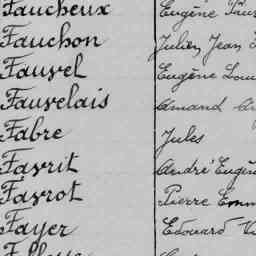 Faucheux Eugène
Fauchon Julien Jean
Fauvel Eugène
Fauvelais Amand
Fabre Jules
Favrit André Eugène
Favrot Pierre
Fayer Edouard